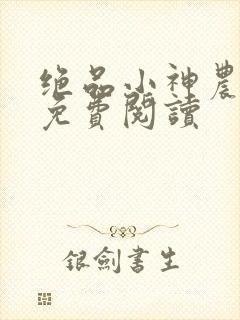 绝品小神農
免費閱讀
银劍書生